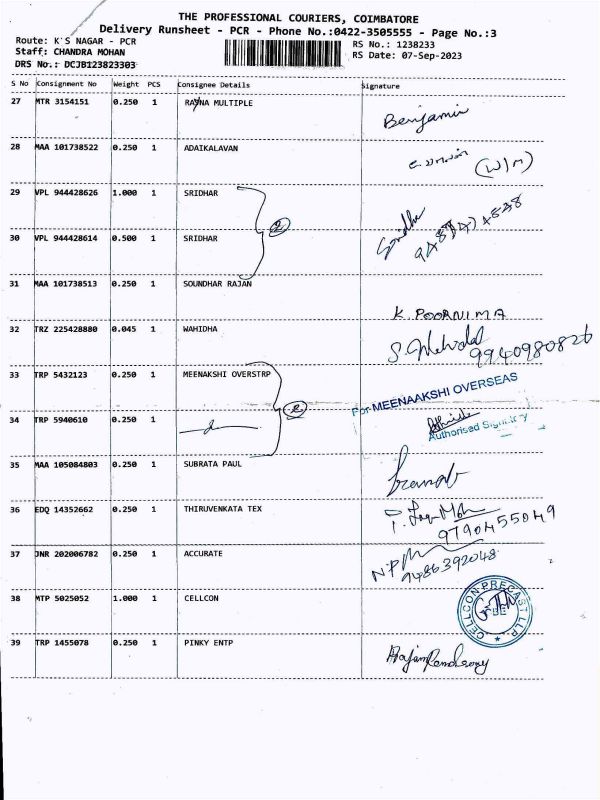 THE PROFESSIONAL COURIERS, COIMBATORE
Delivery Runsheet - PCR - Phone No.:0422-3505555 - Page No.:3
Route: K'S NAGAR - PCR
RS No.: 1238233
Staff: CHANDRA MOHAN
RS Date: 07-Sep-2023
DRS No.: DCJB123823303
S No Consignment No Weight PCS Consignee Details Signature
27 MTR 3154151 0.250 1 RATNA MULTIPLE
Benjamin
28 MAA 101738522 0.250 1 ADAIKALAVAN
(W/M)
29 VPL 944428626 1.000 1 SRIDHAR
2
30 VPL 944428614 0.500 1 SRIDHAR
31 MAA 101738513 0.250 1 SOUNDHAR RAJAN
K POORNIMA
32 TRZ 225428880 0.045 1 WAHIDHA
9940980826
33 TRP 5432123 0.250 1 MEENAKSHI OVERSTRP
For MEENAAKSHI OVERSEAS
2
34 TRP 5940610 0.250 1
Authorised Signatory
35 MAA 105084803 0.250 1 SUBRATA PAUL
36 EDQ 14352662 0.250 1 THIRUVENKATA TEX
9790455049
37 JNR 202006782 0.250 1 ACCURATE
N.P
9486392048
38 MTP 5025052 1.000 1 CELLCON
CELLCON PRECAST LLP
39 TRP 1455078 0.250 1 PINKY ENTP